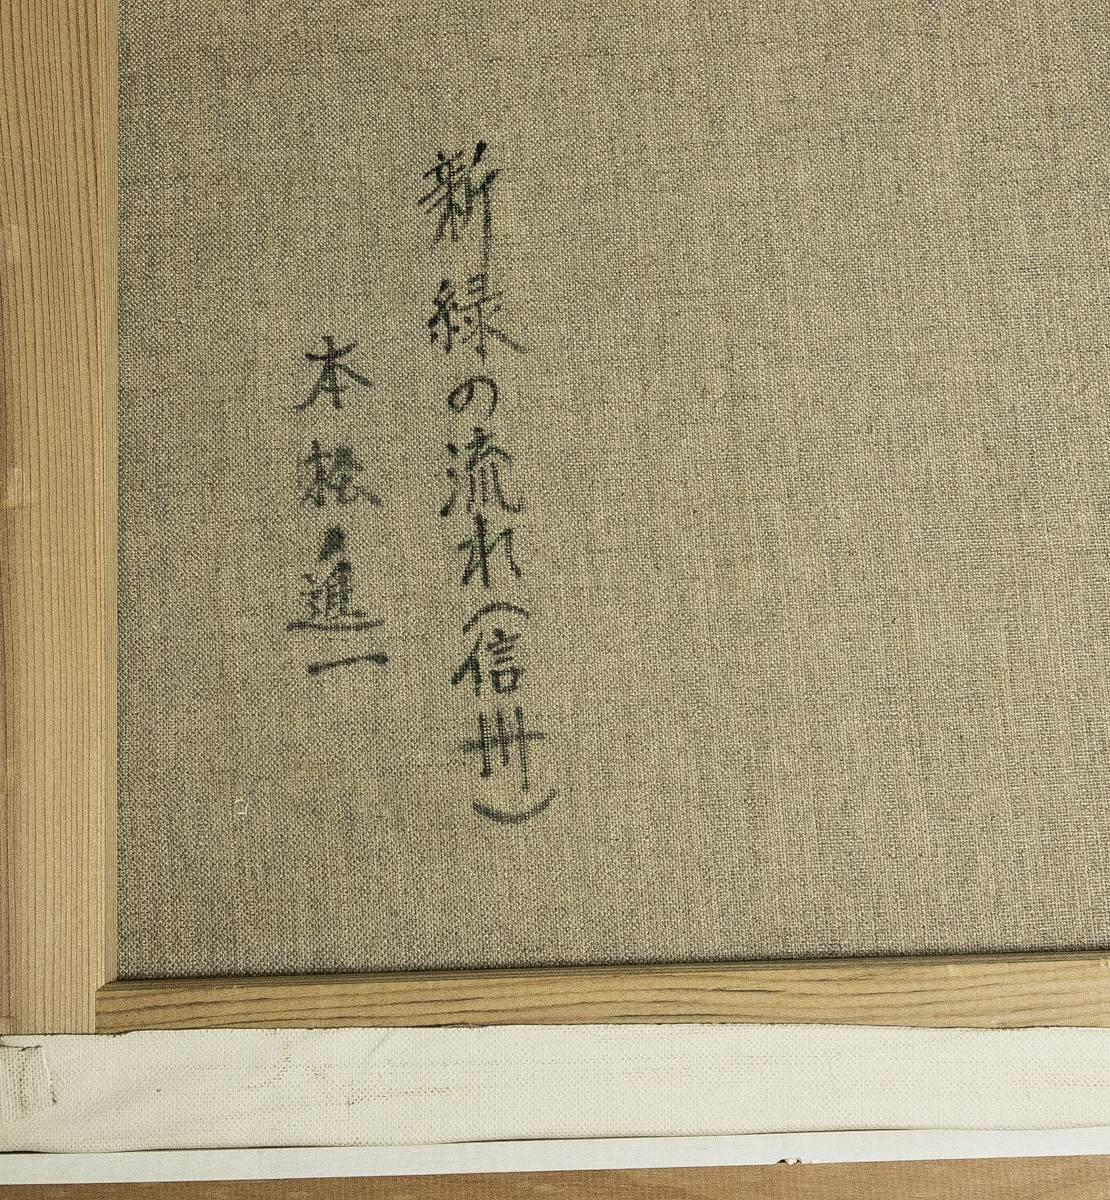 新緑の流れ（信州）
本松進一